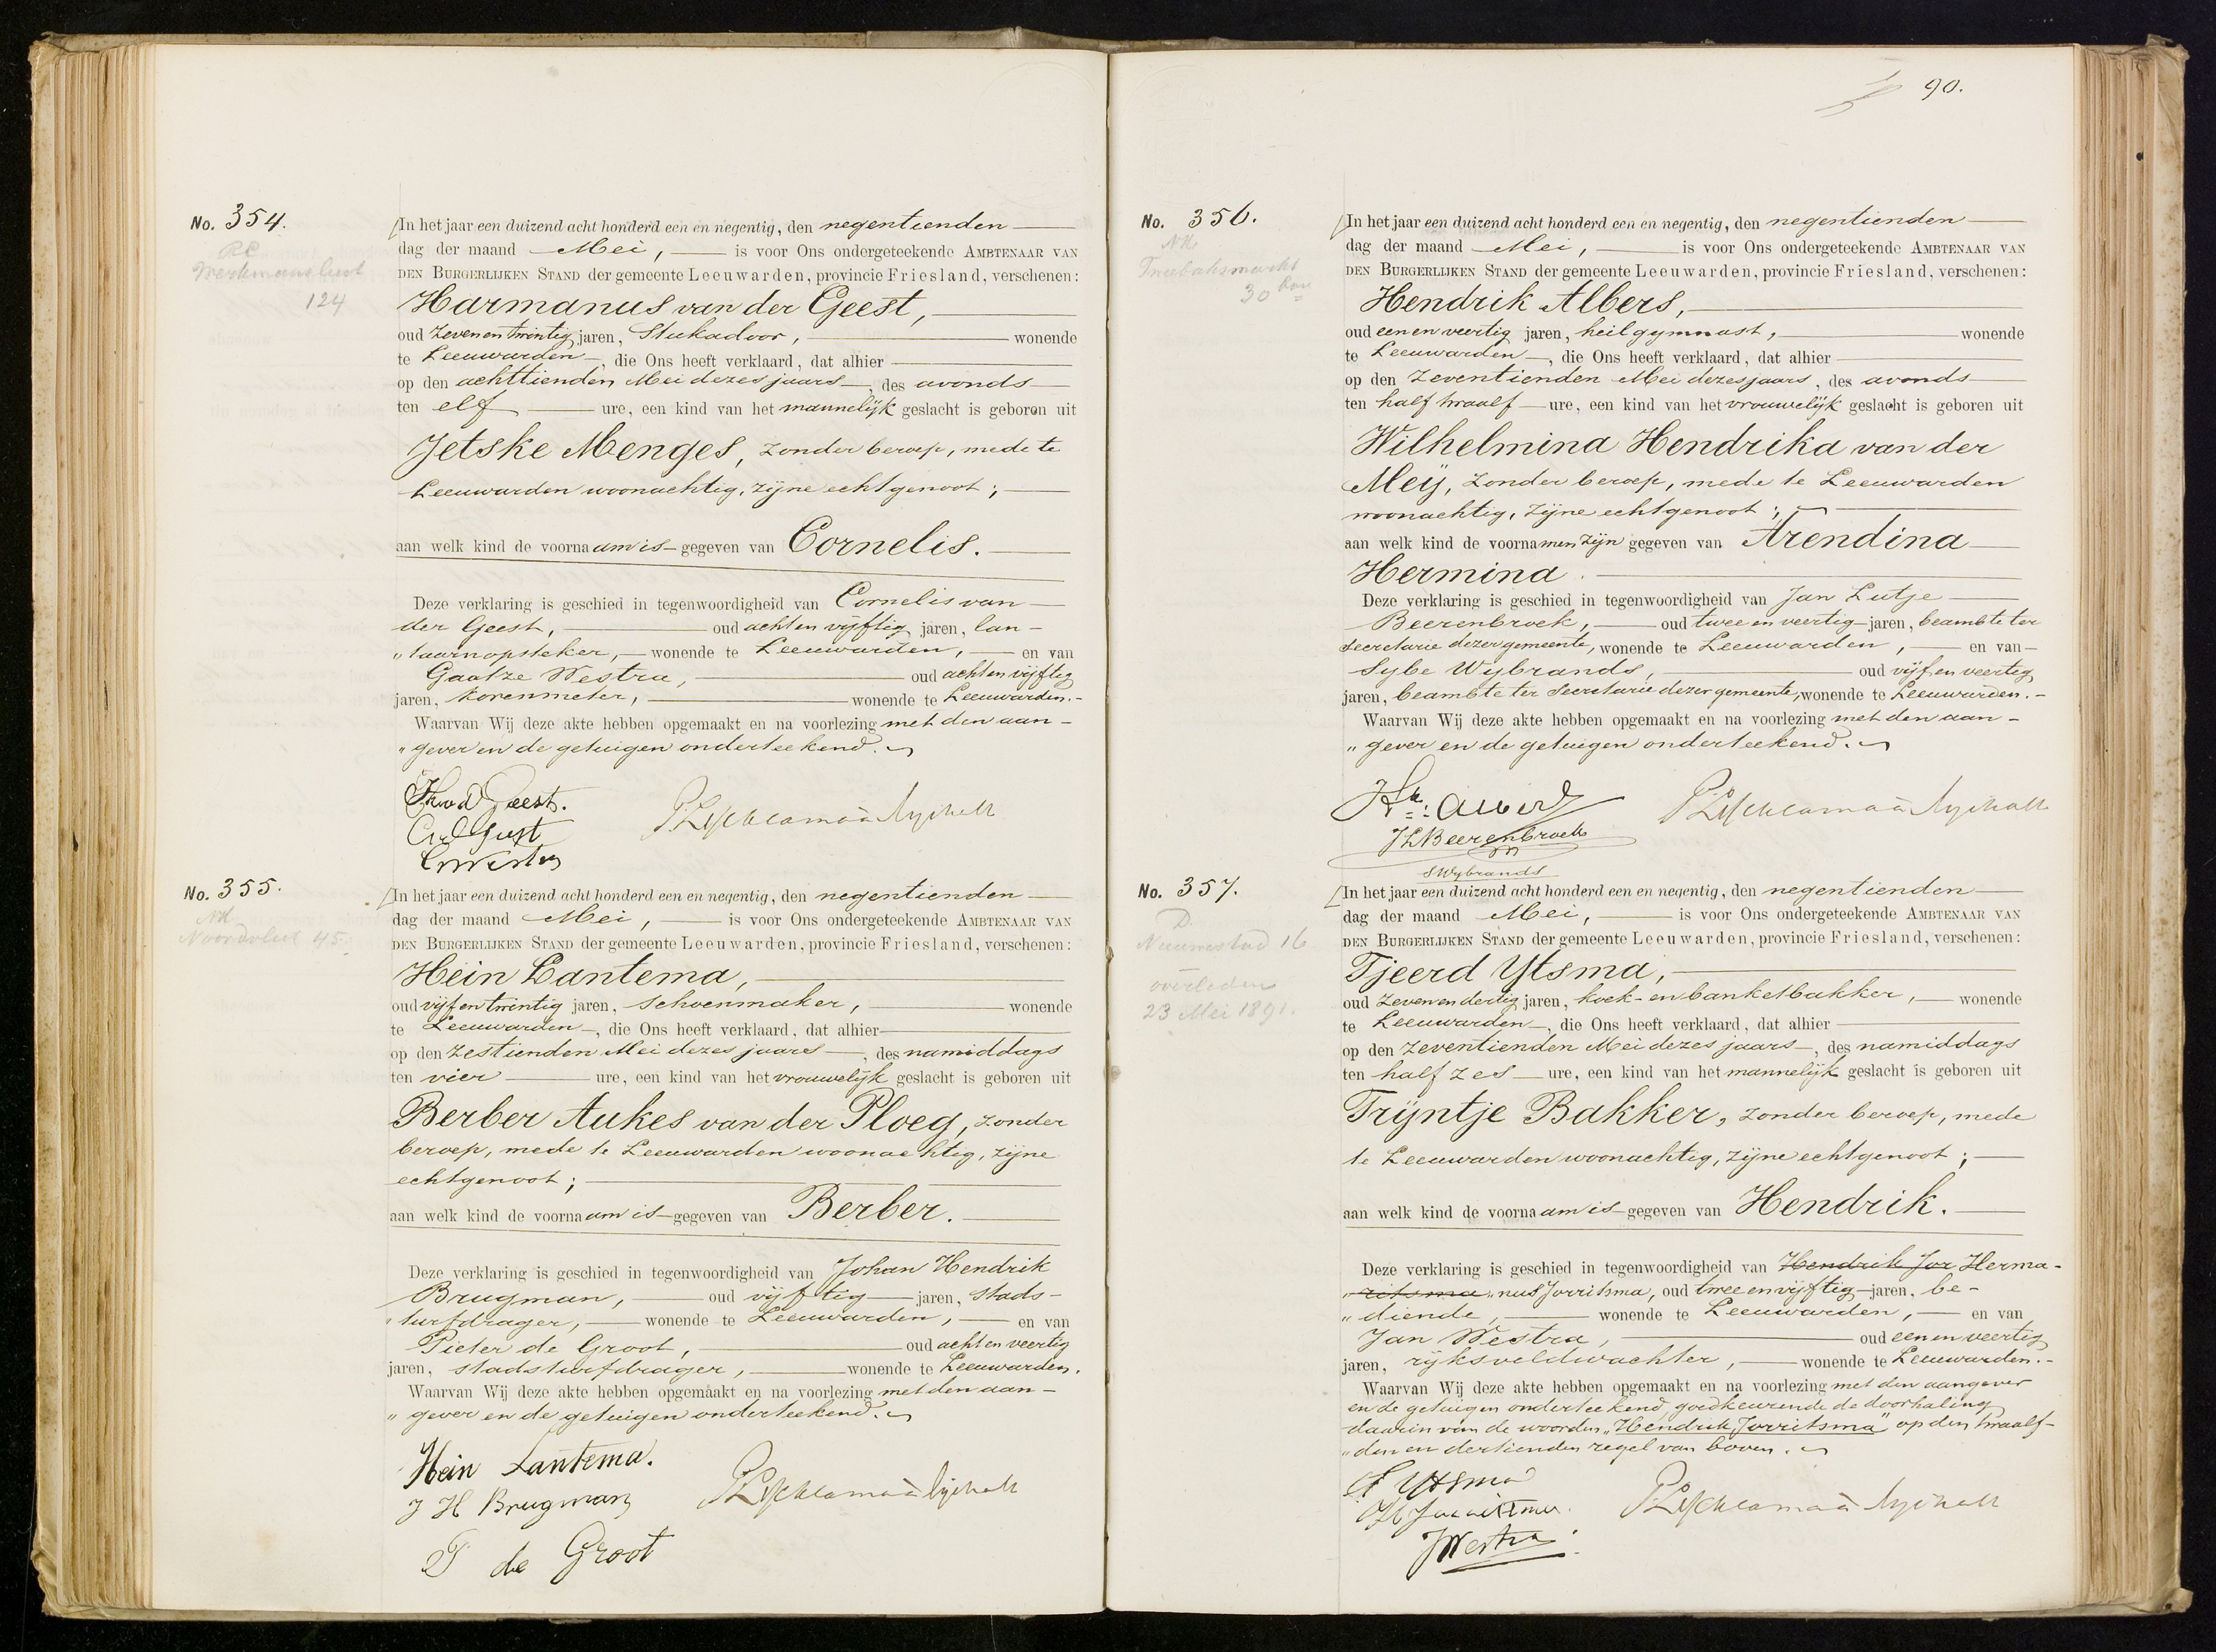 No. 354.
RC
124
In het jaar een duizend acht honderd een en negentig, den negentienden
dag der maand Mei, is voor Ons ondergeteekende AMBTENAAR VAN
DEN BURGERLIJKEN STAND der gemeente Leeuwarden, provincie Friesland, verschenen:
Harmanus van der Geest,
oud zeven en twintig jaren, Stukadoor, wonende
te Leeuwarden, die Ons heeft verklaard, dat alhier
op den achttienden Mei dezes jaars, des avonds
ten elf ure, een kind van het mannelijk geslacht is geboren uit
Jetske Menges, zonder beroep, mede te
Leeuwarden woonachtig, zijne echtgenoot;
aan welk kind de voornaam is gegeven van Cornelis.
Deze verklaring is geschied in tegenwoordigheid van Cornelis van
der Geest, oud acht en vijftig jaren, lan-
„taarnopsteker, wonende te Leeuwarden, en van
Gaatze Westra, oud acht en vijftig
jaren, korenmeter, wonende te Leeuwarden.
Waarvan Wij deze akte hebben opgemaakt en na voorlezing met den aan-
„gever en de getuigen onderteekend.
H v d Geest.
No. 355.
NH
Noordvliet 45.
In het jaar een duizend acht honderd een en negentig, den negentienden
dag der maand Mei, is voor Ons ondergeteekende AMBTENAAR VAN
DEN BURGERLIJKEN STAND der gemeente Leeuwarden, provincie Friesland, verschenen:
Hein Lantema,
oud vijf en twintig jaren, schoenmaker, wonende
te Leeuwarden, die Ons heeft verklaard, dat alhier
op den zestienden Mei dezes jaars, des namiddags
ten vier ure, een kind van het vrouwelijk geslacht is geboren uit
Berber Aukes van der Ploeg, zonder
beroep, mede te Leeuwarden woonachtig, zijne
echtgenoot;
aan welk kind de voornaam is gegeven van Berber.
Deze verklaring is geschied in tegenwoordigheid van Johan Hendrik
Brugman, oud vijftig jaren, stads-
„turfdrager, wonende te Leeuwarden, en van
Pieter de Groot, oud acht en veertig
jaren, stadsturfdrager, wonende te Leeuwarden.
Waarvan Wij deze akte hebben opgemaakt en na voorlezing met den aan-
„gever en de getuigen onderteekend.
Hein Lantema.
J H Brugman
P de Groot
90.
No. 356.
NH
30
In het jaar een duizend acht honderd een en negentig, den negentienden
dag der maand Mei, is voor Ons ondergeteekende AMBTENAAR VAN
DEN BURGERLIJKEN STAND der gemeente Leeuwarden, provincie Friesland, verschenen:
Hendrik Albers,
oud een en veertig jaren, heilgymnast, wonende
te Leeuwarden, die Ons heeft verklaard, dat alhier
op den zeventienden Mei dezes jaars, des avonds
ten half twaalf ure, een kind van het vrouwelijk geslacht is geboren uit
Wilhelmina Hendrika van der
Meij, zonder beroep, mede te Leeuwarden
woonachtig, zijne echtgenoot;
aan welk kind de voornamen zijn gegeven van Arendina
Hermina.
Deze verklaring is geschied in tegenwoordigheid van Jan Lutje
Beerenbroek, oud twee en veertig jaren, beambte ter
secretarie dezer gemeente, wonende te Leeuwarden, en van
Sybe Wybrands, oud vijf en veertig
jaren, beambte ter secretarie dezer gemeente, wonende te Leeuwarden.
Waarvan Wij deze akte hebben opgemaakt en na voorlezing met den aan-
„gever en de getuigen onderteekend.
Hk: Albers
JLBeerenbroek
SWybrands
No. 357.
D.
Nieuwestad 16
overleden
23 Mei 1891.
In het jaar een duizend acht honderd een en negentig, den negentienden
dag der maand Mei, is voor Ons ondergeteekende AMBTENAAR VAN
DEN BURGERLIJKEN STAND der gemeente Leeuwarden, provincie Friesland, verschenen:
Tjeerd Ytsma,
oud zeven en dertig jaren, koek- en banketbakker, wonende
te Leeuwarden, die Ons heeft verklaard, dat alhier
op den zeventienden Mei dezes jaars, des namiddags
ten half zes ure, een kind van het mannelijk geslacht is geboren uit
Trijntje Bakker, zonder beroep, mede
te Leeuwarden woonachtig, zijne echtgenoot;
aan welk kind de voornaam is gegeven van Hendrik.
Deze verklaring is geschied in tegenwoordigheid van Hendrik Jor Herma-
„ritsma „nus Jorritsma, oud twee en vijftig jaren, be-
„diende, wonende te Leeuwarden, en van
Jan Westra, oud een en veertig
jaren, rijksveldwachter, wonende te Leeuwarden.
Waarvan Wij deze akte hebben opgemaakt en na voorlezing met den aangever
en de getuigen onderteekend, goedkeurende de doorhaling
daarin van de woorden „Hendrik Jorritsma" op den twaalf-
„den en dertienden regel van boven.
T Ytsma
H Jorritsma.
JWestra